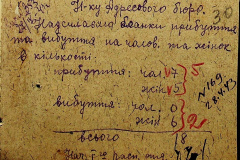 Н-ку Адресового бюро.
30
Надсилаємо бланки прибуття
та вибуття на часов. та жінок
в кількости:
прибуття: чол 7
5
жін 5
вибуття: чол. 0
жін 6
2
всього 18
№ 69
28.4.43